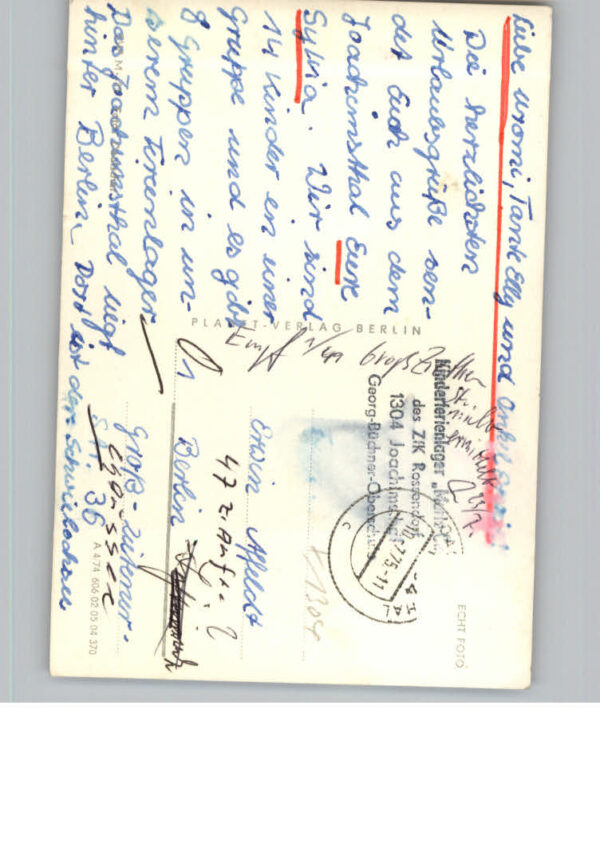 Liebe Uromi, Tante Elly und Onkel
Die herzlichsten
Urlaubsgrüße sen-
det Euch aus dem
Joachimsthal Eure
Sylvia. Wir sind
14 Kinder in einer
Gruppe und es gibt
8 Gruppen in un-
serem Ferienlager
Das Joachimsthal liegt
hinter Berlin. Dort ist der
PLANET-VERLAG BERLIN
Empf
Kinderferienlager
des ZfK Rossendorf
1304 Joachimsthal
Georg-Büchner-Oberschule
75-11
1304
Erwin Affeldt
47 z. Aufg.
Berlin
Groß-Ziethener-
Chaussee
36
ECHT FOTO
A 4/74 606 02 05 04 370